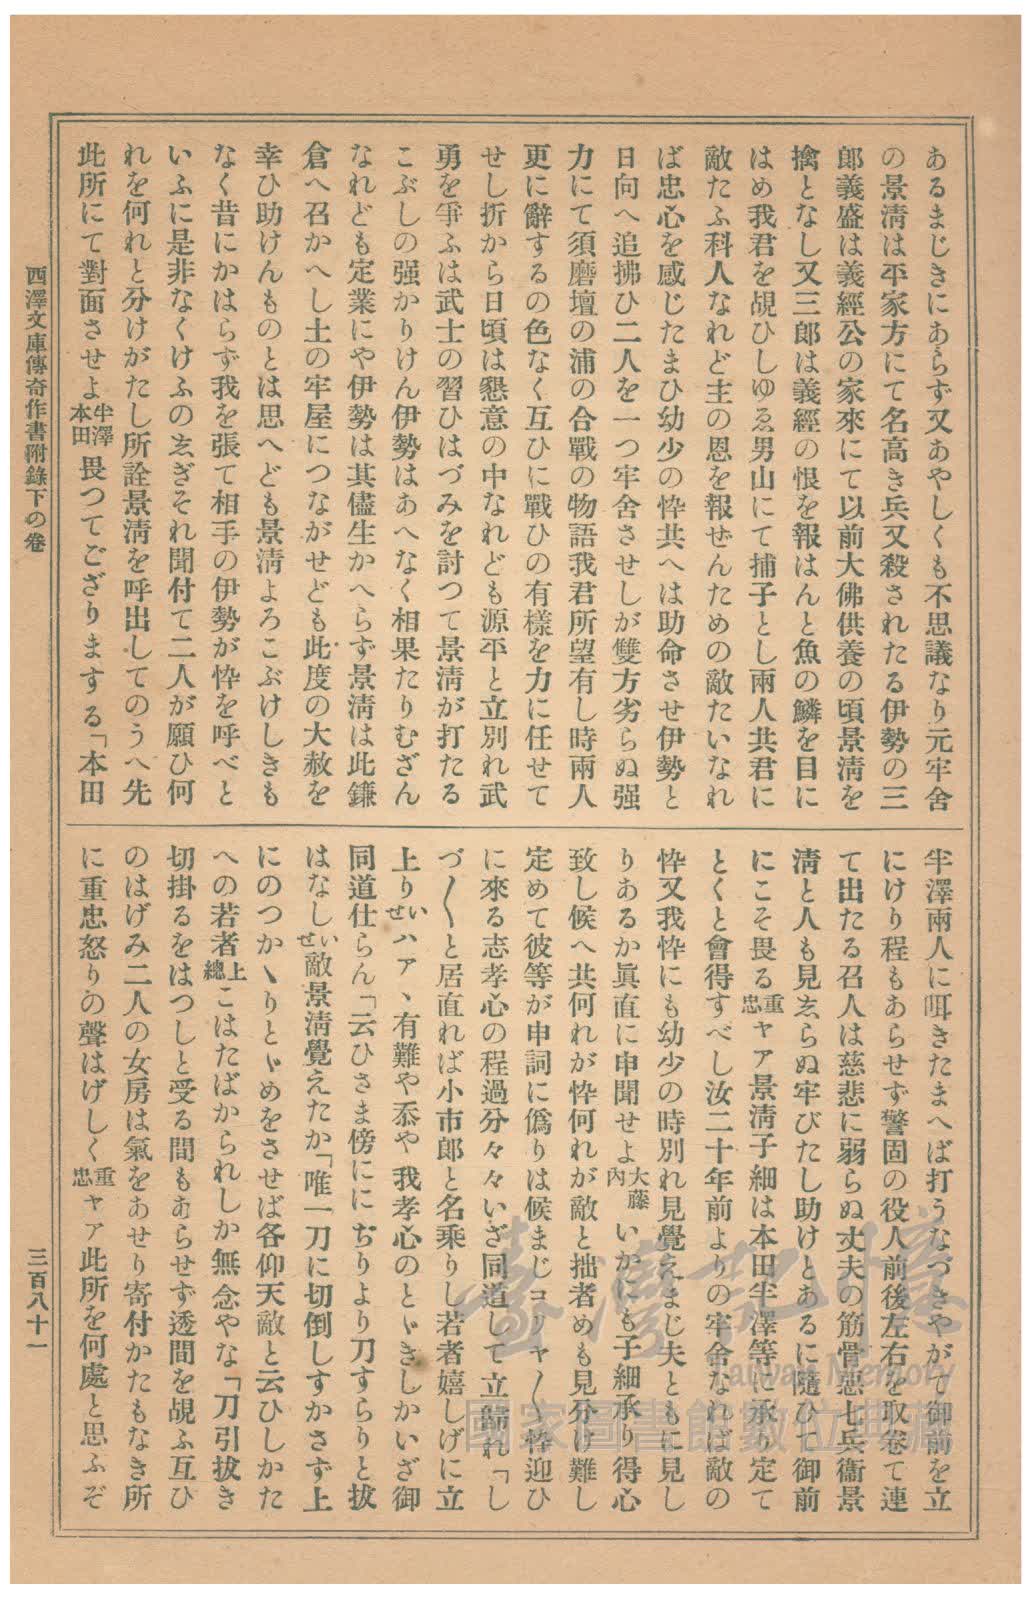 あるまじきにあらず又あやしくも不思議なり元牢舍
の景淸は平家方にて名高き兵又殺されたる伊勢の三
郞義盛は義經公の家來にて以前大佛供養の頃景淸を
擒となし又三郞は義經の恨を報はんと魚の鱗を目に
はめ我君を覘ひしゆゑ男山にて捕子とし兩人共君に
敵たふ科人なれど主の恩を報ぜんための敵たいなれ
ば忠心を感じたまひ幼少の忰共へは助命させ伊勢と
日向へ追拂ひ二人を一つ牢舍させしが雙方劣らぬ强
力にて須磨壇の浦の合戰の物語我君所望有し時兩人
更に辭するの色なく互ひに戰ひの有樣を力に任せて
せし折から日頃は懇意の中なれども源平と立別れ武
勇を爭ふは武士の習ひはづみを討つて景淸が打たる
こぶしの强かりけん伊勢はあへなく相果たりむざん
なれども定業にや伊勢は其儘生かへらず景淸は此鎌
倉へ召かへし土の牢屋につながせども此度の大赦を
幸ひ助けんものとは思へども景淸よろこぶけしきも
なく昔にかはらず我を張て相手の伊勢が忰を呼べと
いふに是非なくけふのゑぎそれ聞付て二人が願ひ何
れを何れと分けがたし所詮景淸を呼出してのうへ先
此所にて對面させよ半澤本田畏つてござりまする「本田
半澤兩人に咡きたまへば打うなづきやがて御前を立
にけり程もあらせず警固の役人前後左右を取卷て連
て出たる召人は慈悲に弱らぬ丈夫の筋骨惡七兵衞景
淸と人も見ゑらぬ牢びたし助けとあるに隨ひて御前
にこそ畏る重忠ヤア景淸子細は本田半澤等に承り定て
とくと會得すべし汝二十年前よりの牢舍なれば敵の
忰又我忰にも幼少の時別れ見覺えまじ夫ともに見し
りあるか眞直に申聞せよ大藤內いかにも子細承り得心
致し候へ共何れが忰何れが敵と拙者めも見分け難し
定めて彼等が申詞に僞りは候まじコリヤ〱忰迎ひ
に來る志孝心の程過分々々いざ同道して立歸れ「し
づ〱と居直れば小市郞と名乘りし若者嬉しげに立
上りいせハア、有難や忝や我孝心のとゞきしかいざ御
同道仕らん「云ひさま傍ににぢりより刀すらりと拔
はなしいせ敵景淸覺えたか「唯一刀に切倒しすかさず上
にのつかゝりとゞめをさせば各仰天敵と云ひしかた
への若者上總こはたばかられしか無念やな「刀引拔き
切掛るをはつしと受る間もあらせず透間を覘ふ互ひ
のはげみ二人の女房は氣をあせり寄付かたもなき所
に重忠怒りの聲はげしく重忠ヤア此所を何處と思ふぞ
西澤文庫傳奇作書附錄下の卷
三百八十一
臺灣記憶
Taiwan Memory
國家圖書館數位典藏